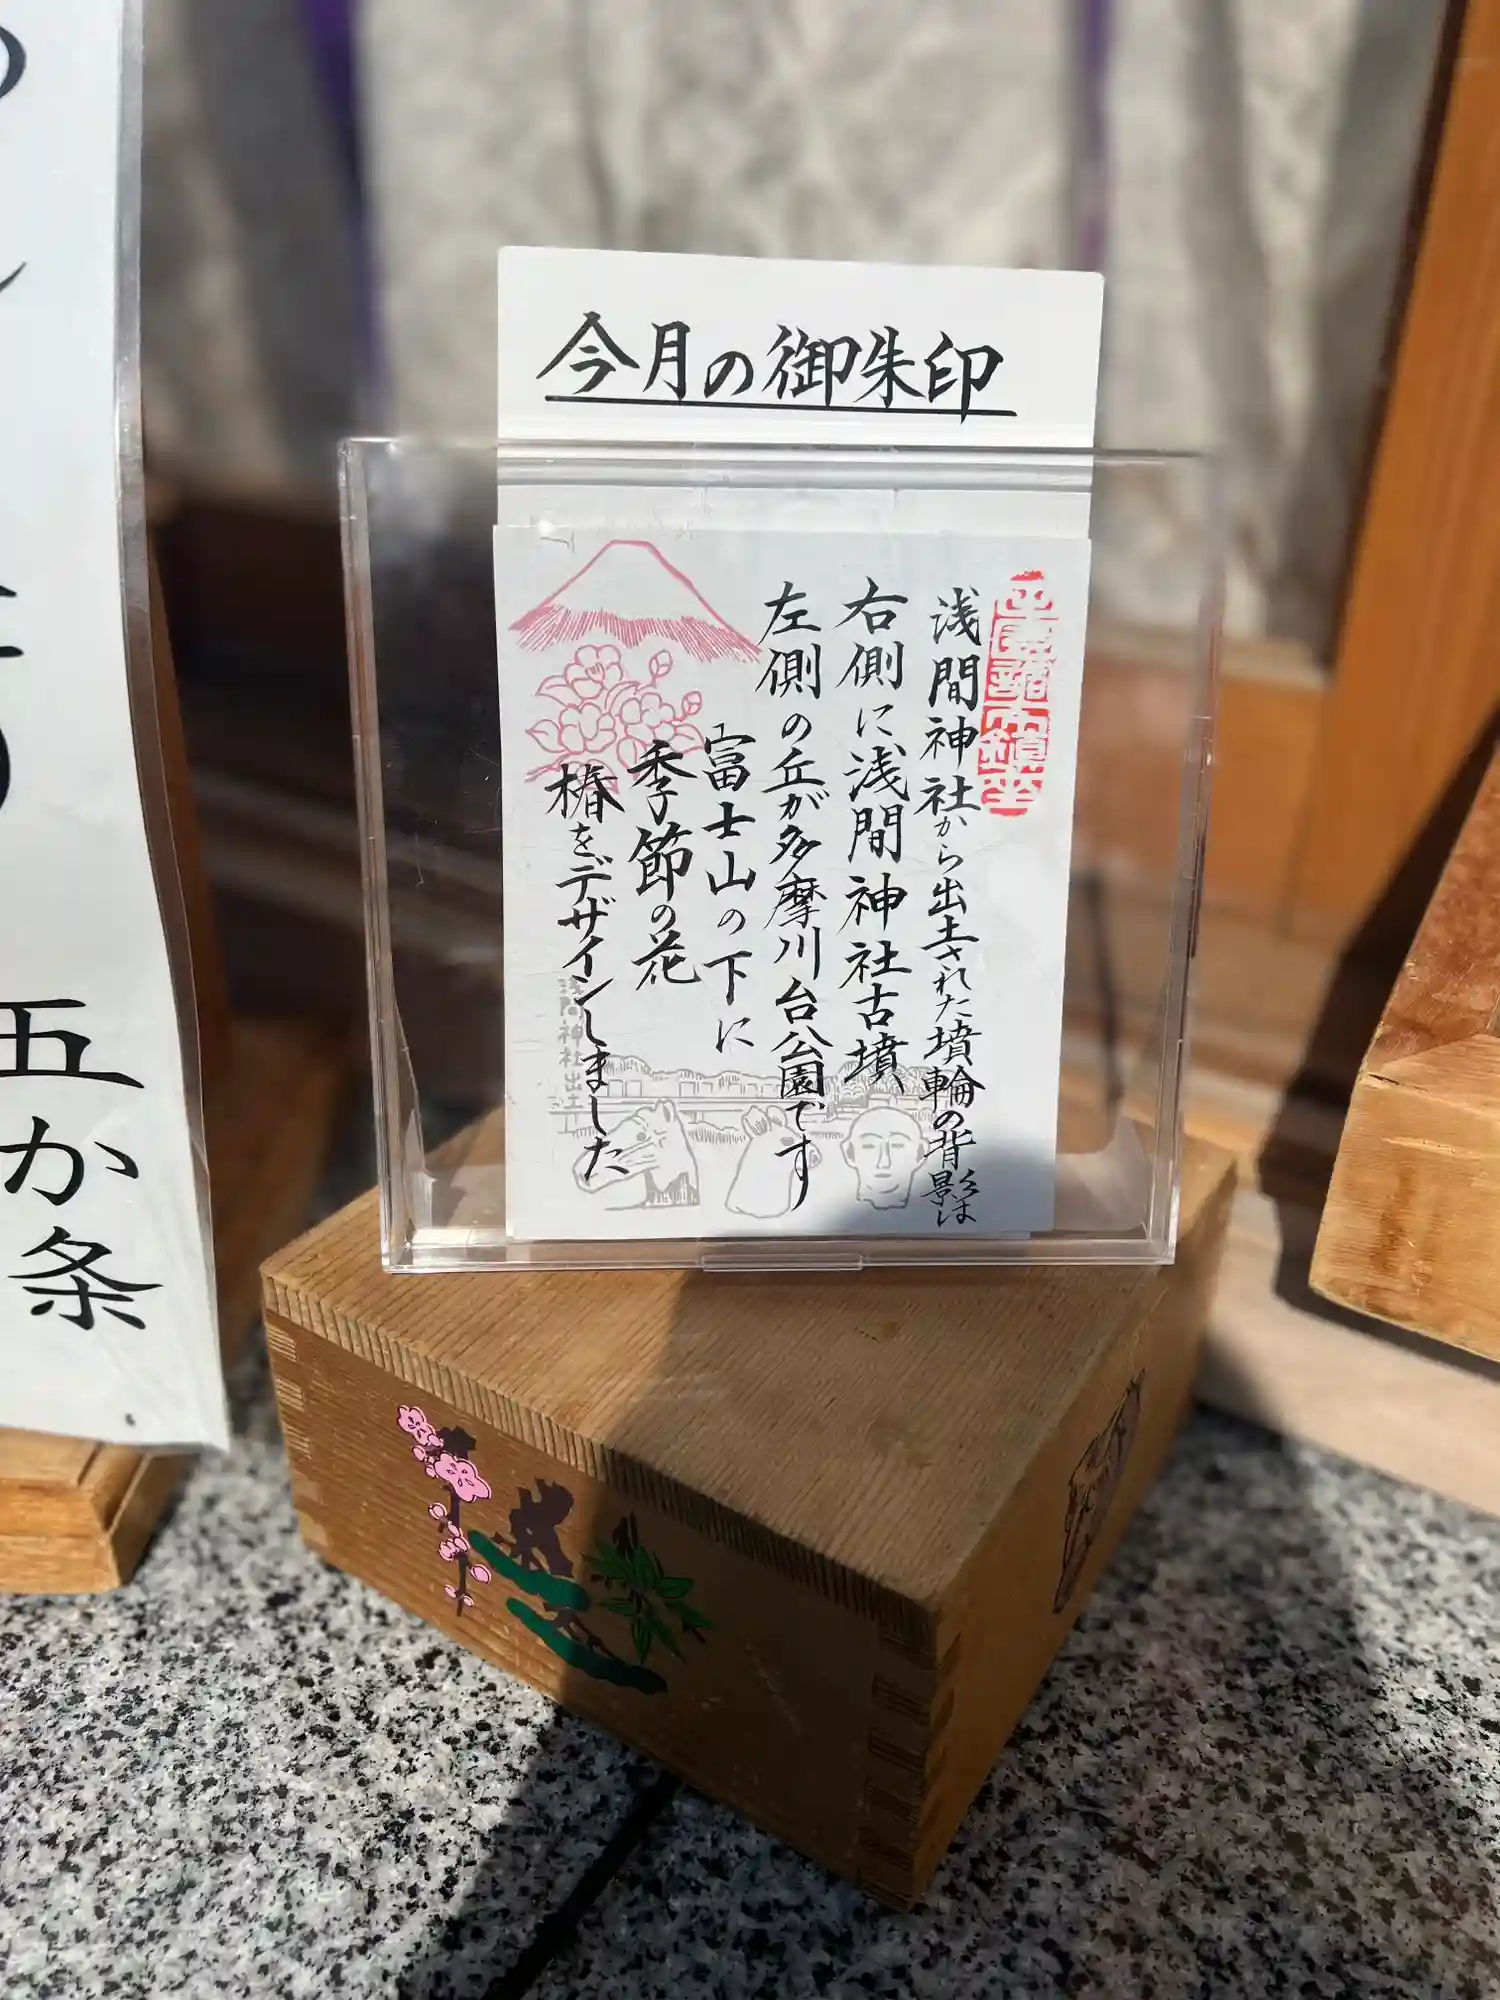 今月の御朱印
浅間神社から出土された墳輪の背景は
右側に浅間神社古墳
左側の丘が多摩川台公園です
富士山の下に
季節の花
椿をデザインしました
浅間神社出土
五か条